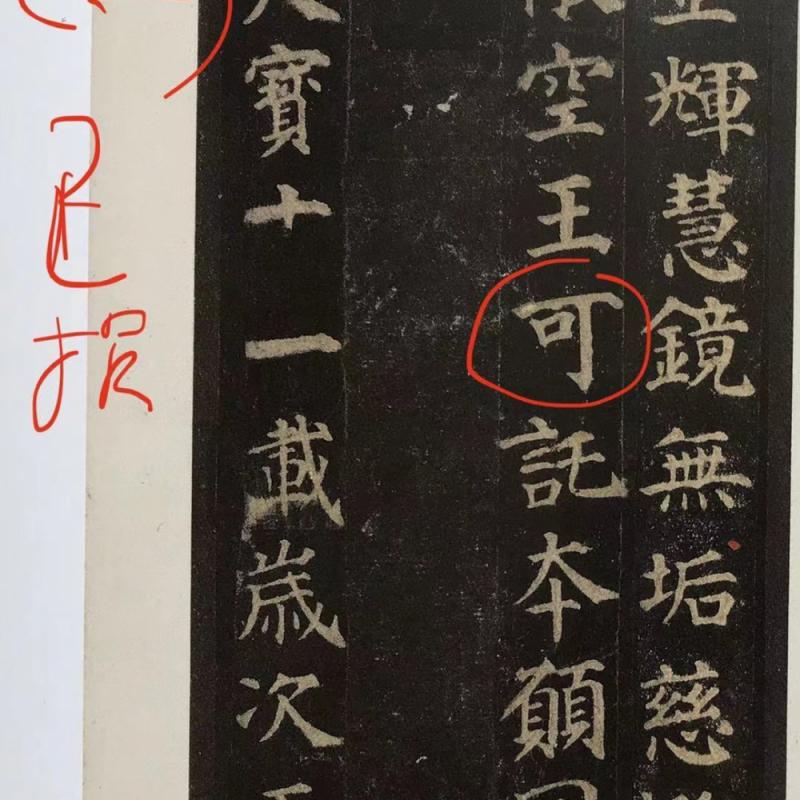 輝慧鏡無垢慈
空王可託夲願
寶十一載歲次
损